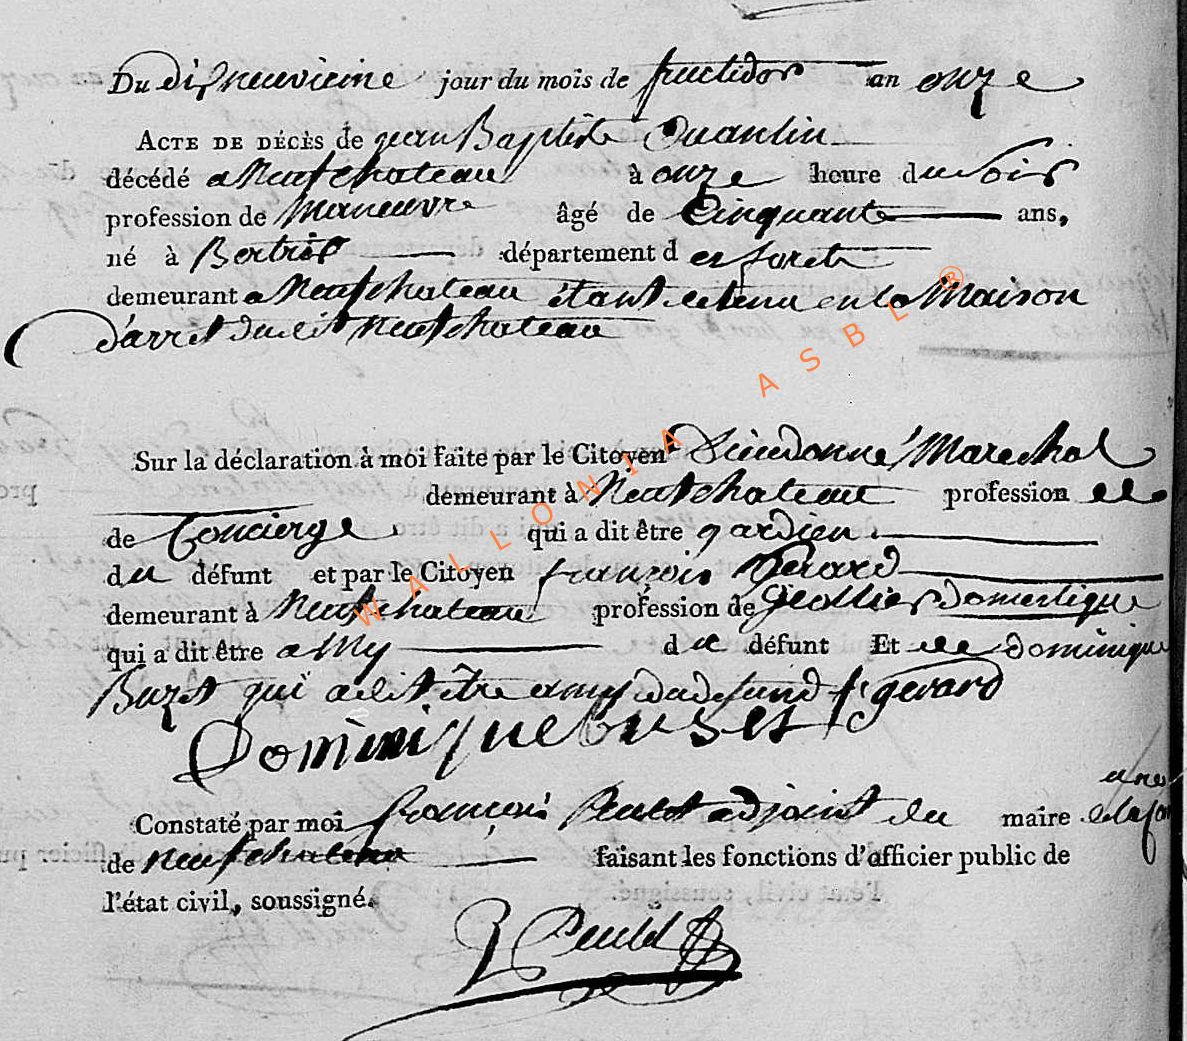 Du disneuvieme jour du mois de fructidor an onze
ACTE DE DÉCÈS de jean Baptiste Quantin
décédé a Neufchateau à onze heure du soir
profession de Maneuvre âgé de Cinquante ans,
né à Bertrix département d es forets
demeurant a Neufchateau étant detenu en la Maison
d'arret dudit neufchateau
Sur la déclaration à moi faite par le Citoyen Dieudonné Marechal
demeurant à Neufchateau profession
de Concierge qui a dit être gardien
du défunt et par le Citoyen françois Gerard
demeurant à Neufchateau profession de Geollier domestique
qui a dit être amy du défunt Et de dominique
Buzet qui a dit être amy du defund f: gerard
Dominique buset
Constaté par moi françois adjoint du maire
de neufchateau faisant les fonctions d'officier public de
l'état civil, soussigné.
WALLONIA ASBL ®